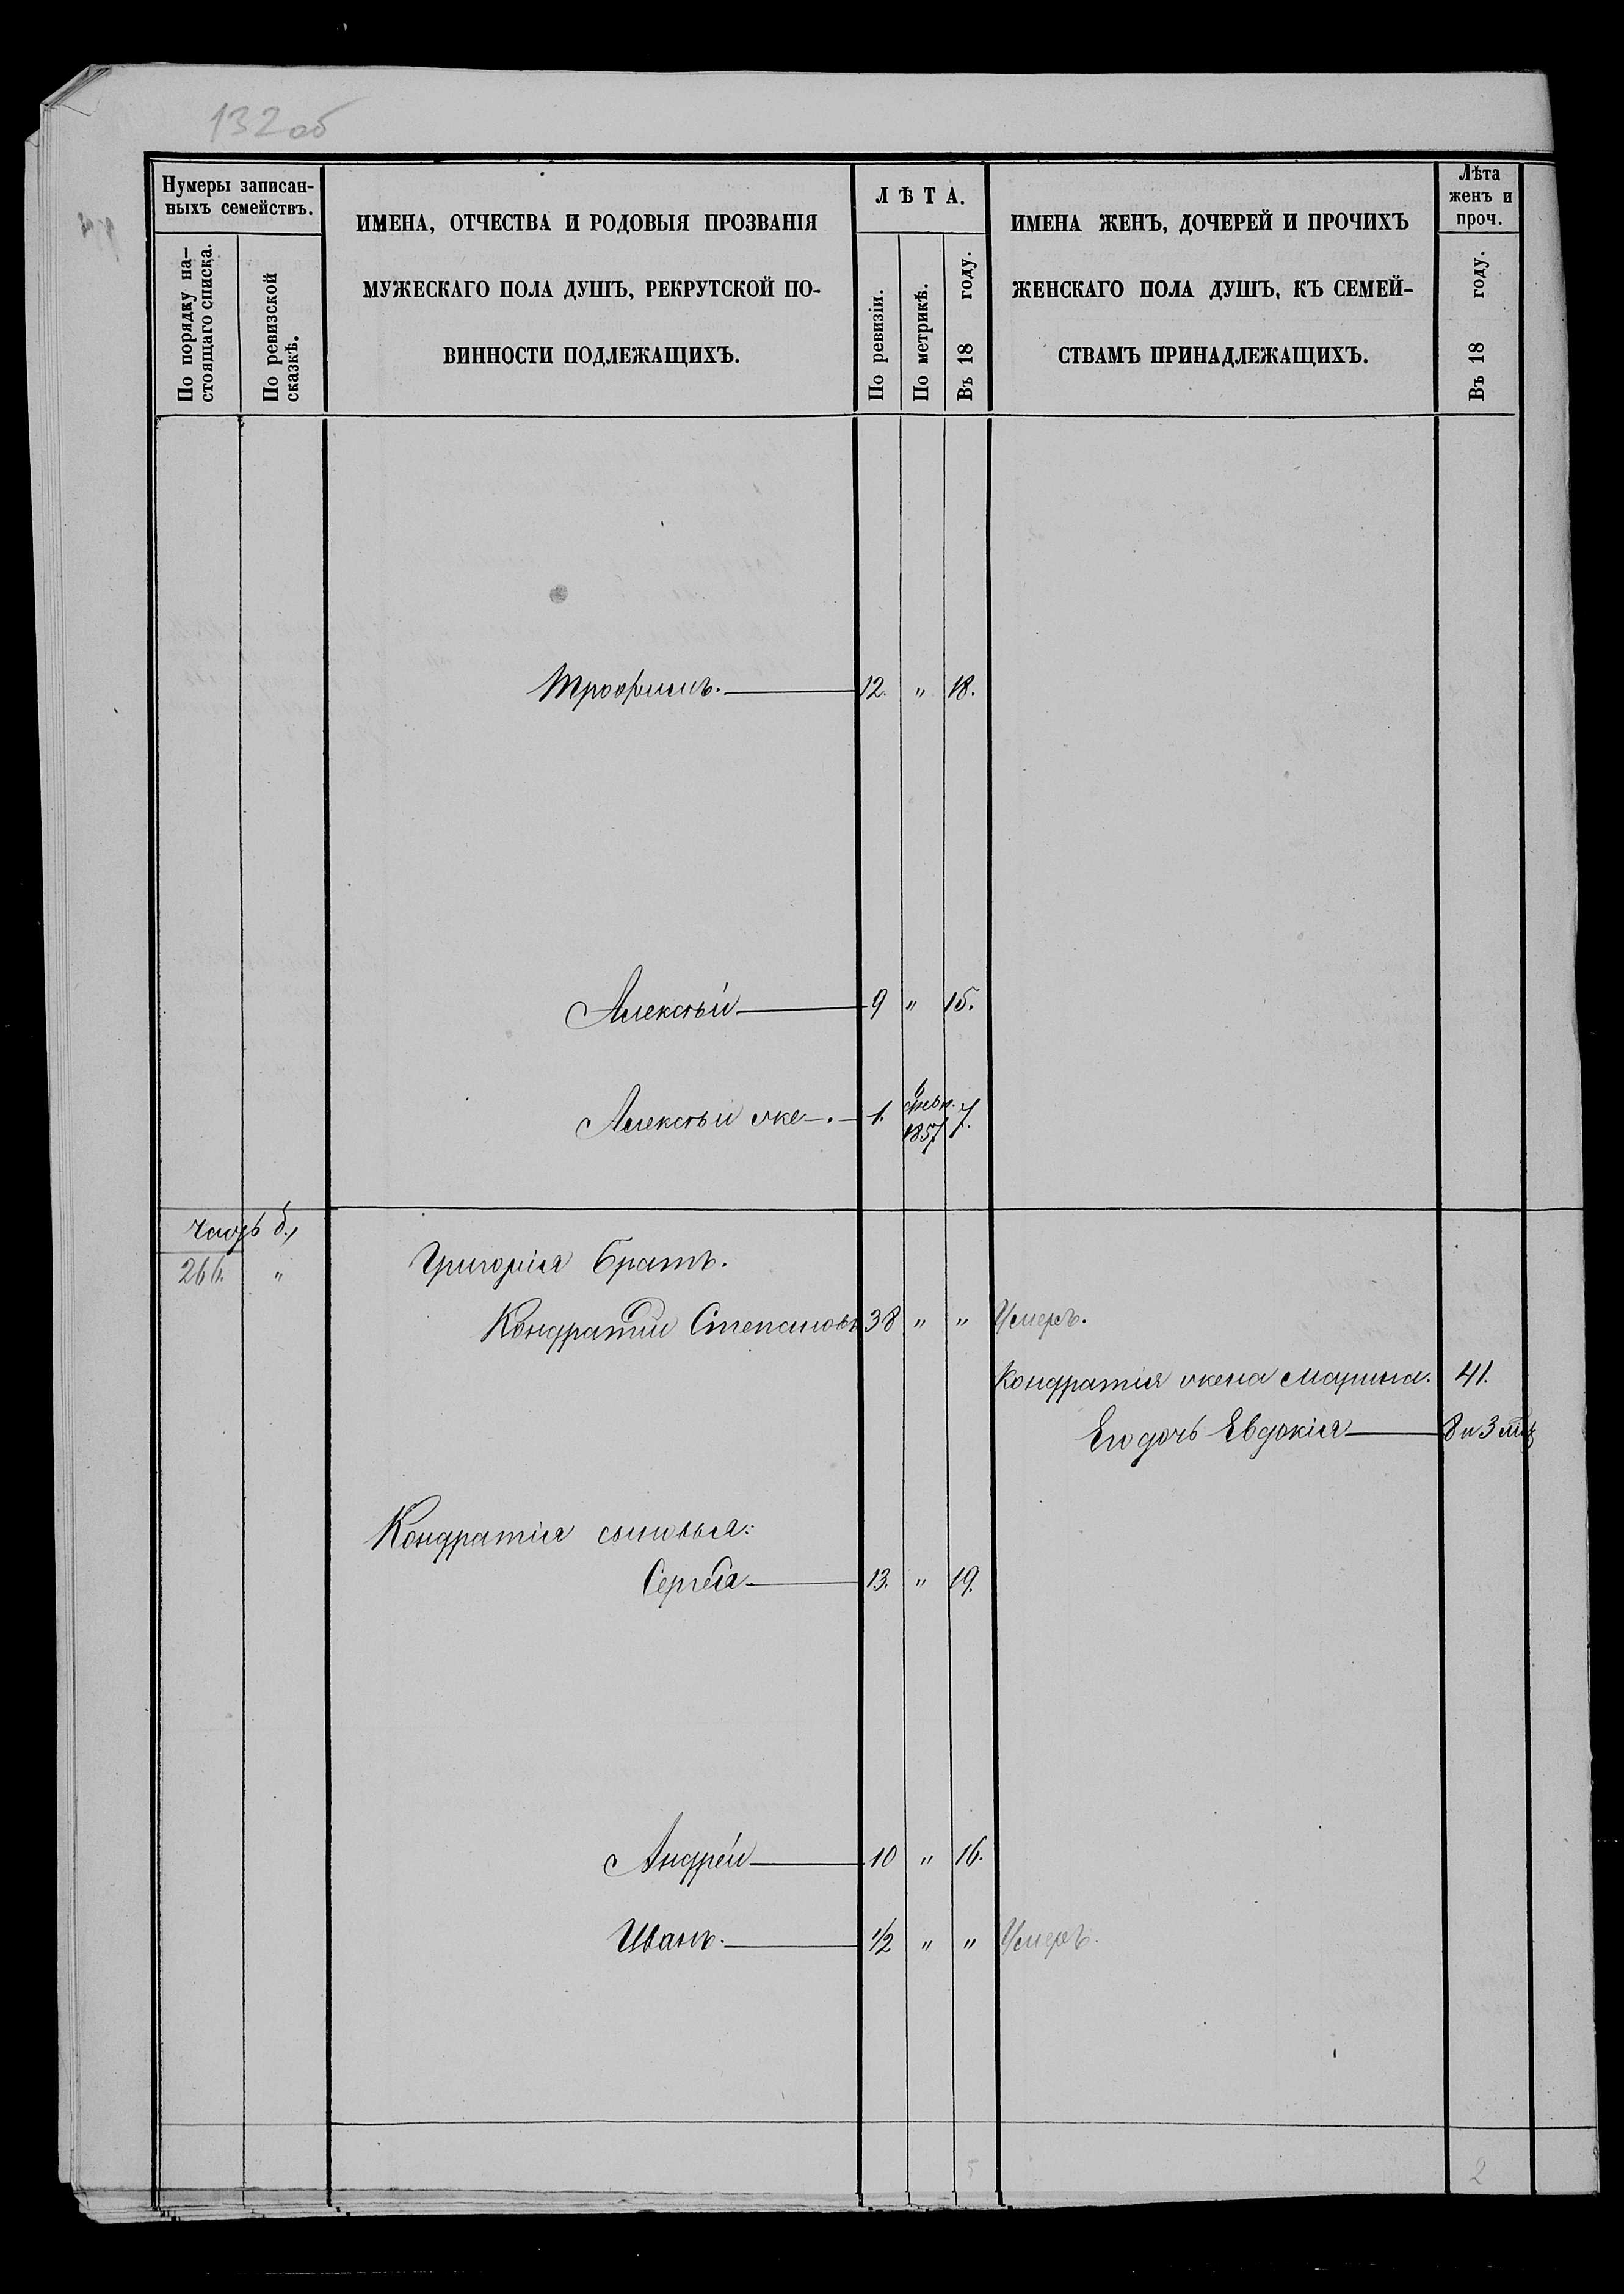 132 об
Нумеры записан-
ныхъ семействъ.
По порядку на-
стоящаго списка.
По ревизской
сказкѣ.
ИМЕНА, ОТЧЕСТВА И РОДОВЫЯ ПРОЗВАНІЯ
МУЖЕСКАГО ПОЛА ДУШЪ, РЕКРУТСКОЙ ПО-
ВИННОСТИ ПОДЛЕЖАЩИХЪ.
ЛѢТА.
По ревизіи.
По метрикѣ.
Въ 18 году.
ИМЕНА ЖЕНЪ, ДОЧЕРЕЙ И ПРОЧИХЪ
ЖЕНСКАГО ПОЛА ДУШЪ, КЪ СЕМЕЙ-
СТВАМЪ ПРИНАДЛЕЖАЩИХЪ.
Лѣта
женъ и
проч.
Въ 18 году.
Трофимъ. 12. " 18.
Алексѣй 9 " 15.
Алексѣй же 1. 1857 7.
часть б.,
266. " Григорія братъ.
Кондратій Степановъ 38 " " Умеръ.
Кондратія жена Марина. 41.
Его дочь Евдокія 8 и 3 мц
Кондратія сыновья:
Сергѣй 13. " 19.
Андрей 10 " 16.
Иванъ. 1/2 " " Умеръ.
5 2